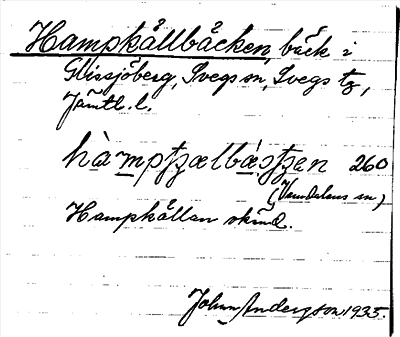 Hampkållbäcken, bäck i
Glissjöberg, Svegs sn, Svegs tg,
Jämtl. l.
260
(Vemdalens sn)
Hampkållan skind.
Johan Anderson 1935.